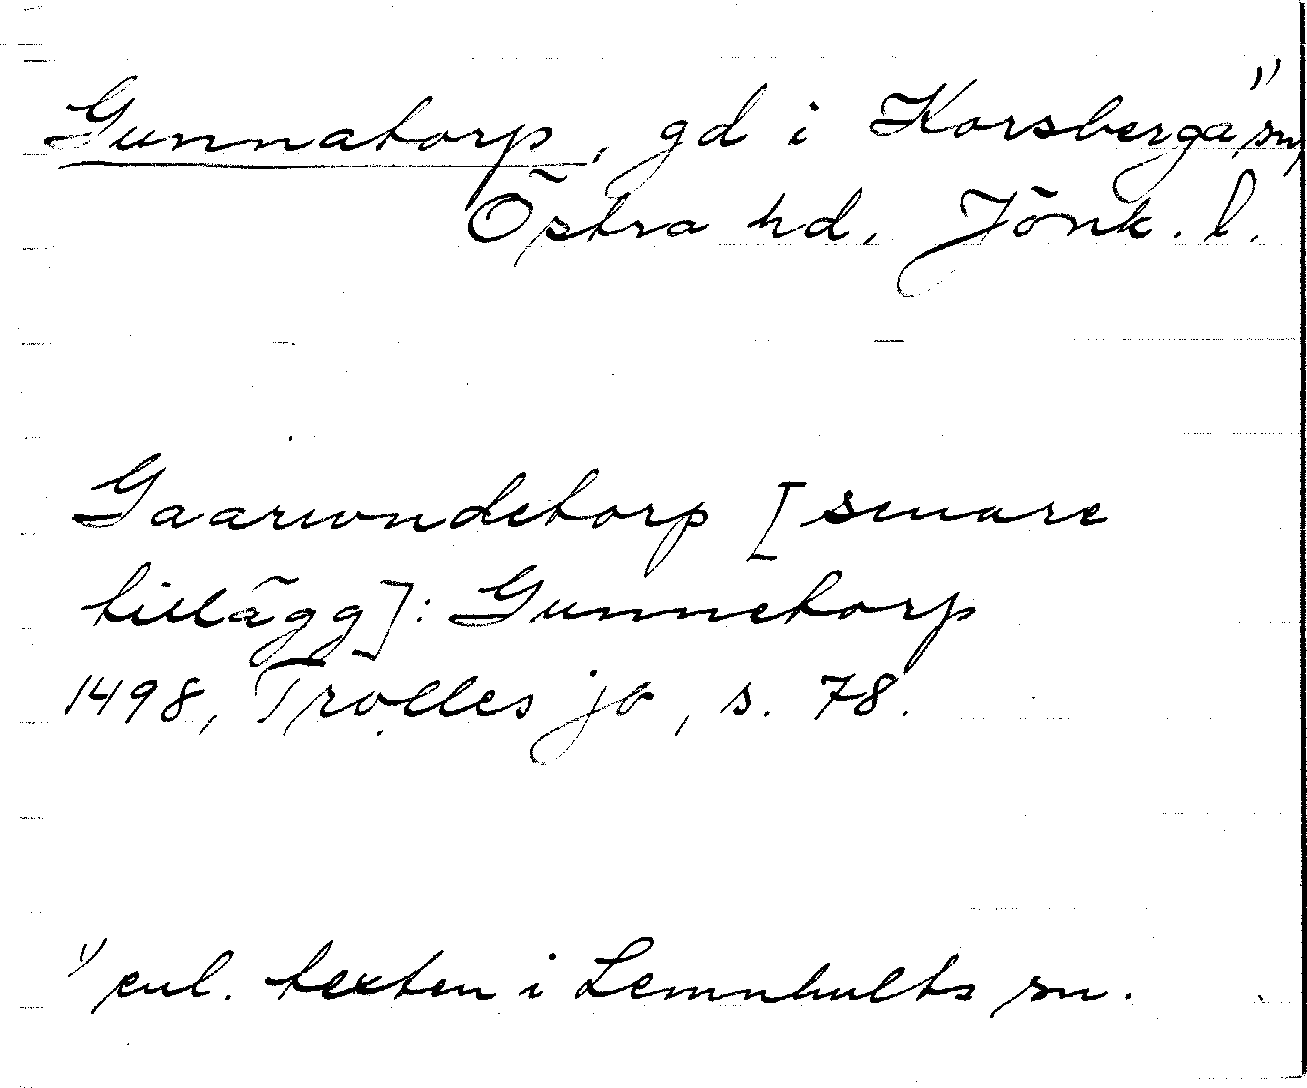 Gunnatorp, gd i Korsberga ¹⁾ sn,
Östra hd, Jönk. l.
Gaarwndetorp [senare
tillägg]: Gunnetorp
1498, Trolles jb, s. 78.
¹⁾ enl. texten i Lemnhults sn.